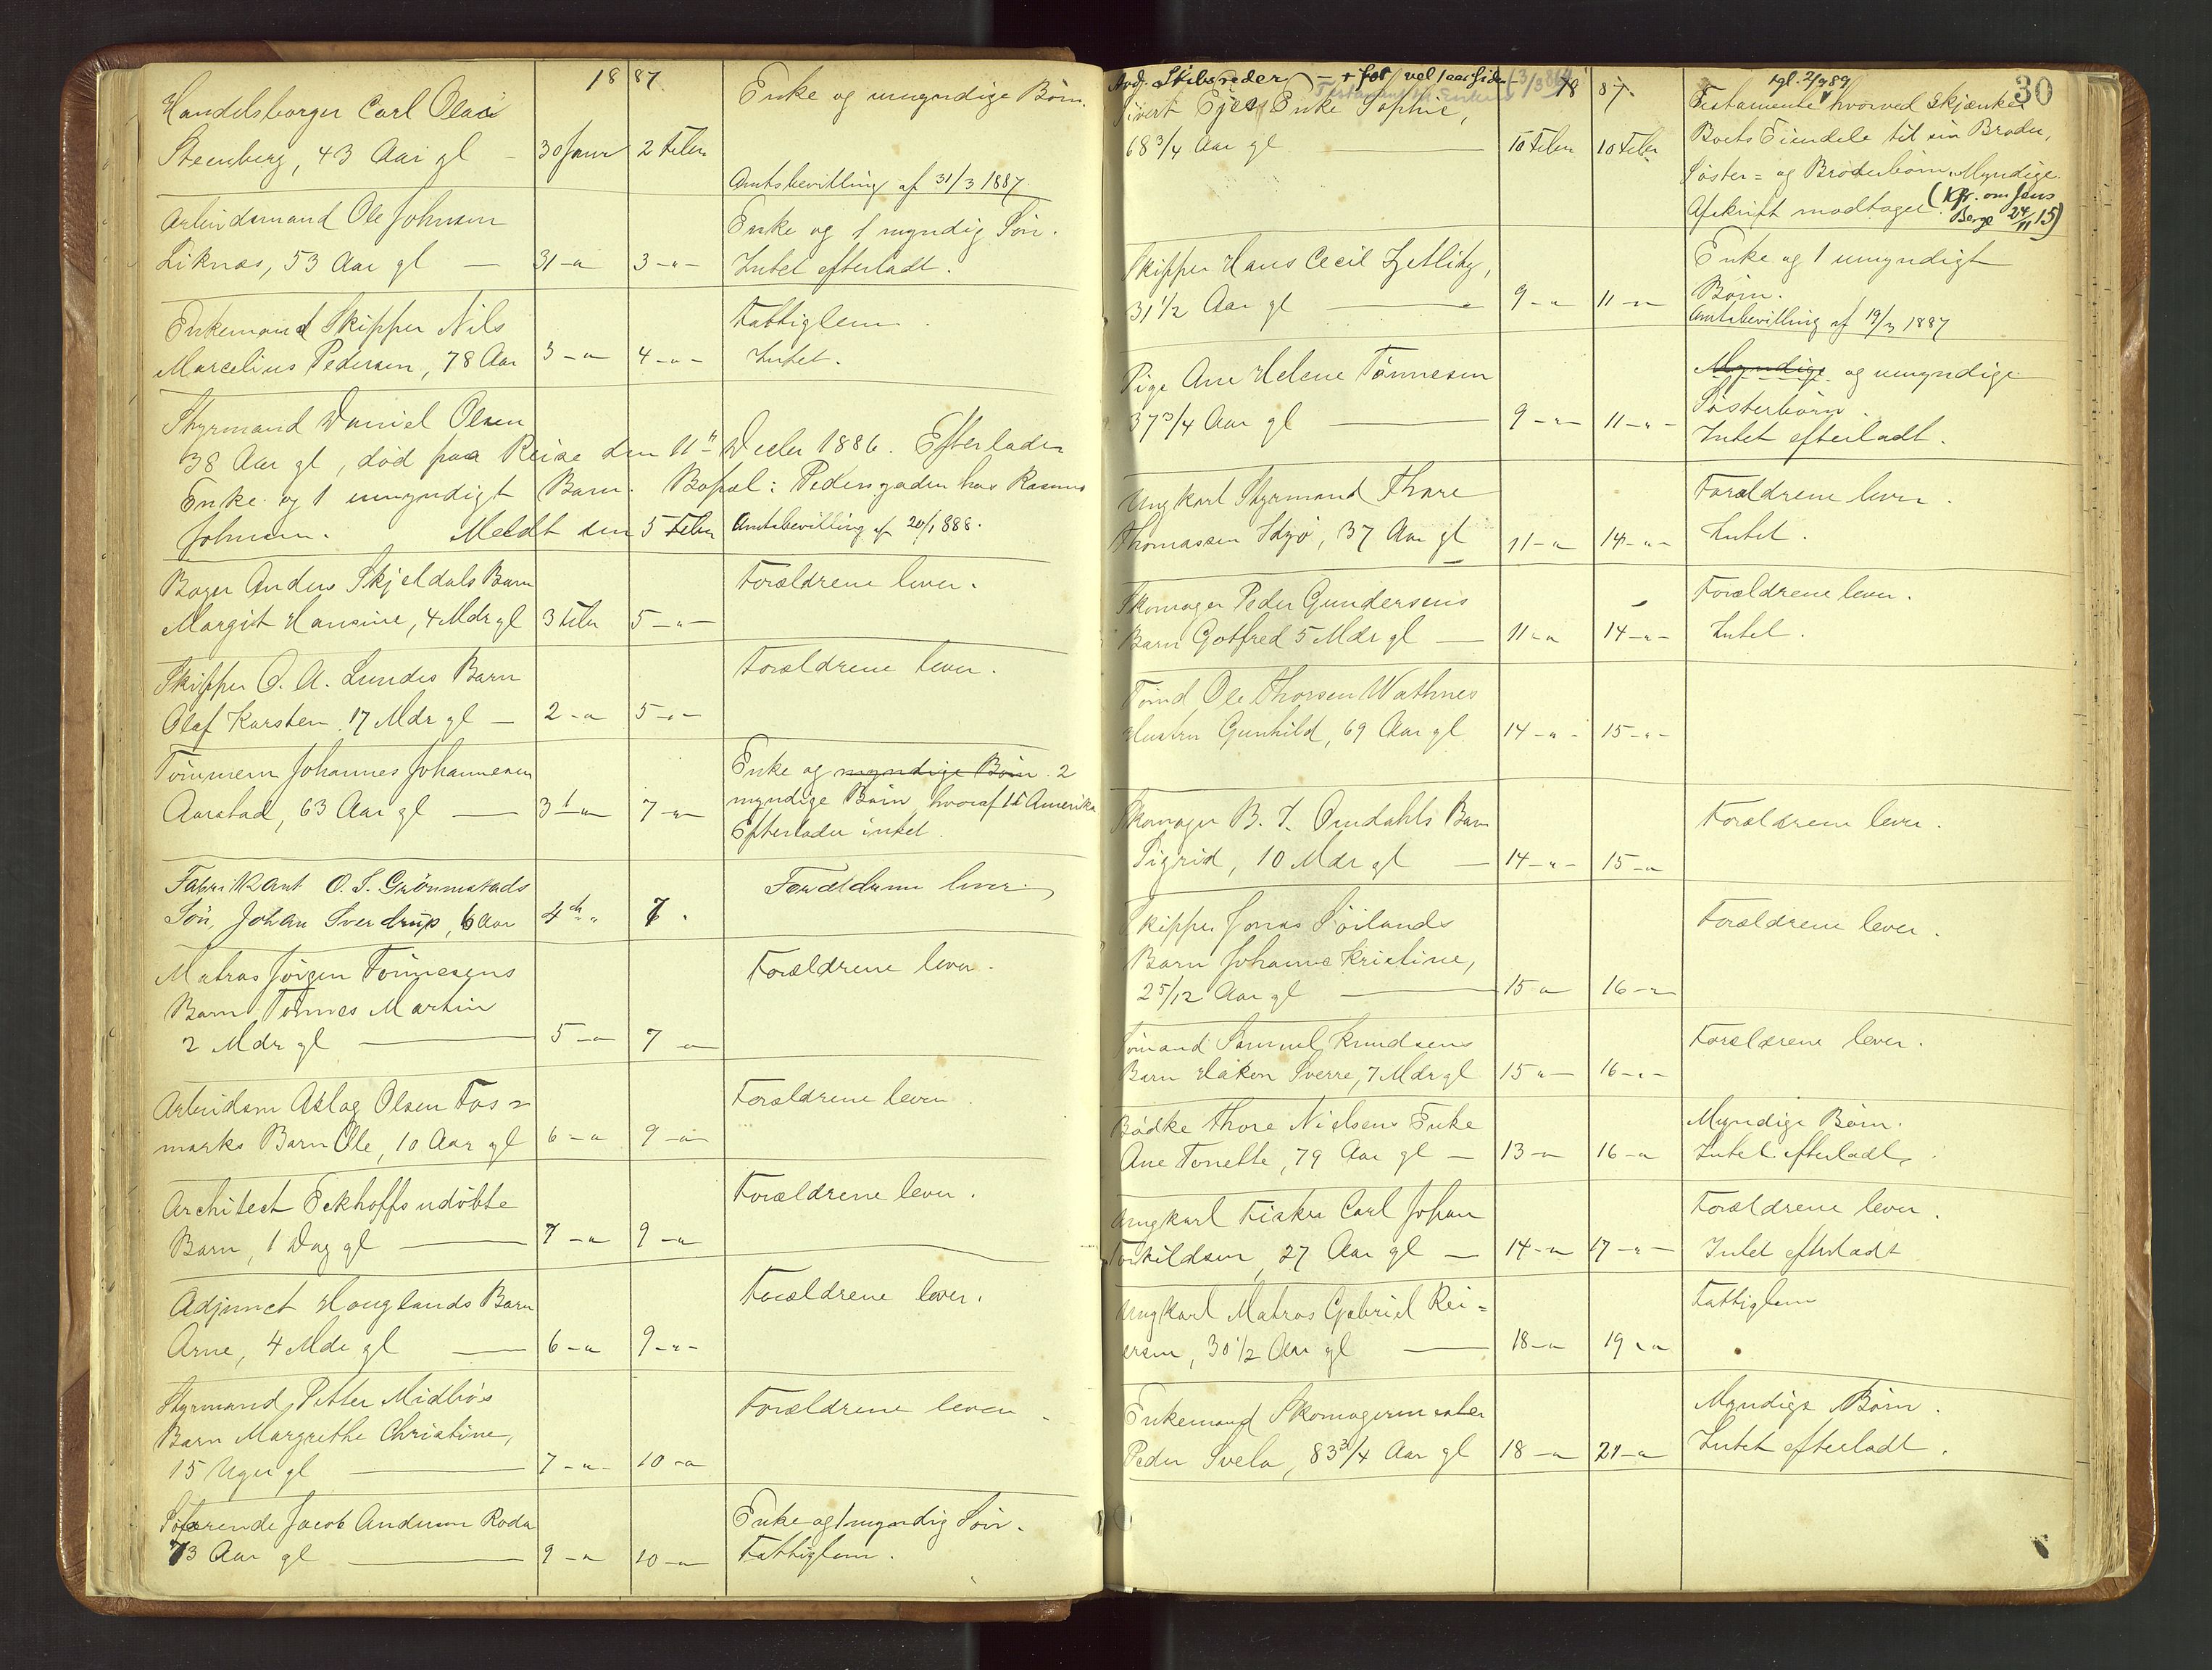 1887
Handelsborger Carl Olaus Enke og umyndige Börn.
Steenberg, 43 Aar gl – 30 Janr 2 Febr
Amtsbevilling af 31/3 1887.
Arbeidsmand Ole Johnsen Enke og 1 myndig Sön.
Liknæs, 53 Aar gl — 31-"- 3-"- Intet efterladt.
Enkemand Skipper Nils Fattiglem.
Marcelius Pedersen, 78 Aar 3-"- 4-"- Intet.
Styrmand Daniel Olsen
38 Aar gl, död paa Reise den 11te Decbr 1886. Efterlader
Enke og 1 umyndigt Barn. Bopæl: Pedersgaden hos Rasmus
Johnsen. Meldt den 5 Febr Amtsbevilling af 20/1 888.
Bager Anders Skjeldals Barn Forældrene lever.
Margit Hansine, 4 Mdr gl 3 Febr 5-"-
Skipper O. A. Lundes Barn Forældrene lever.
Olaf Karsten 17 Mdr gl — 2-"- 5-"-
Tömmerm Johannes Johannesen Enke og myndige Börn. 2
Aarstad, 63 Aar gl — 3-"- 7-"- myndige Börn, hvoraf 1 i Amerika
Efterlader intet.
Fabrikant O. S. Grönnestads Forældrene lever.
Sön, Johan Sverdrup, 6 Aar 4de " 7.
Matros Jörgen Tönnesens Forældrene lever.
Barn Tönnes Martin
2 Mdr gl — 5-"- 7-"-
Arbeidsm Aslag Olsen Fos= Forældrene lever.
marks Barn Ole, 10 Aar gl 6-"- 9-"-
Architect Eckhoffs udöbte Forældrene lever.
Barn, 1 Dag gl — 7-"- 9-"-
Adjunct Houglands Barn Forældrene lever.
Arne, 4 Mdr gl — 6-"- 9-"-
Styrmand Petter Midbös Forældrene lever.
Barn Margrethe Christine,
15 Uger gl — 7-"- 10-"-
Söfarende Jacob Andersen Roda Enke og 1 myndig Sön.
73 Aar gl — 9-"- 10-"- Fattiglem.
30
Avd. Skibsreder – + for vel 1 aar siden
1887. tgl. 2/9 89
Sivert Ejes Enke Sophie, Testamente hvorved skjænker
68 3/4 Aar gl — 10 Febr 10 Febr Boets Eiendele til sin Broder,
Söster= og Broderbörn. Myndige.
Afskrift modtaget. (Kfr. om Jens
Berge 24/11 15)
Skipper Hans Cecil Zetlitz, Enke og 1 umyndigt
31 1/2 Aar gl — 9-"- 11-"- Börn.
Amtsbevilling af 19/3 1887
Pige Ane Helene Tönnesen Myndige og umyndige
37 3/4 Aar gl — 9-"- 11-"- Sösterbörn.
Intet efterladt.
Ungkarl Styrmand Thore Forældrene lever.
Thomassen, 37 Aar gl 11-"- 14-"- Intet.
Skomager Peder Gundersens Forældrene lever.
Barn Gotfred 5 Mdr gl — 11-"- 14-"- Intet.
Ole Thorsen Wathnes
Hustru Gunhild, 69 Aar gl 14-"- 15-"-
Skomager B. T. Omdahls Barn Forældrene lever.
Sigrid, 10 Mdr gl — 14-"- 15-"-
Skipper Jonas Söilands Forældrene lever.
Barn Johanne Kristine,
2 5/12 Aar gl — 15-"- 16-"-
Sömand Samuel Knudsens Forældrene lever.
Barn Håkon Sverre, 7 Mdr gl 15-"- 16-"-
Bödke Thore Nielsens Enke Myndige Börn.
Ane Tonette, 79 Aar gl — 13-"- 16-"- Intet efterladt.
Ungkarl Fisker Carl Johan Forældrene lever.
Torkildsen, 27 Aar gl — 14-"- 17-"- Intet efterladt
Ungkarl Matros Gabriel Rei= Fattiglem
ersen, 30 1/2 Aar gl — 18-"- 19-"-
Enkemand Skomagermester Myndige Börn.
Peder Svela, 83 3/4 Aar gl 18-"- 21-"- Intet efterladt.